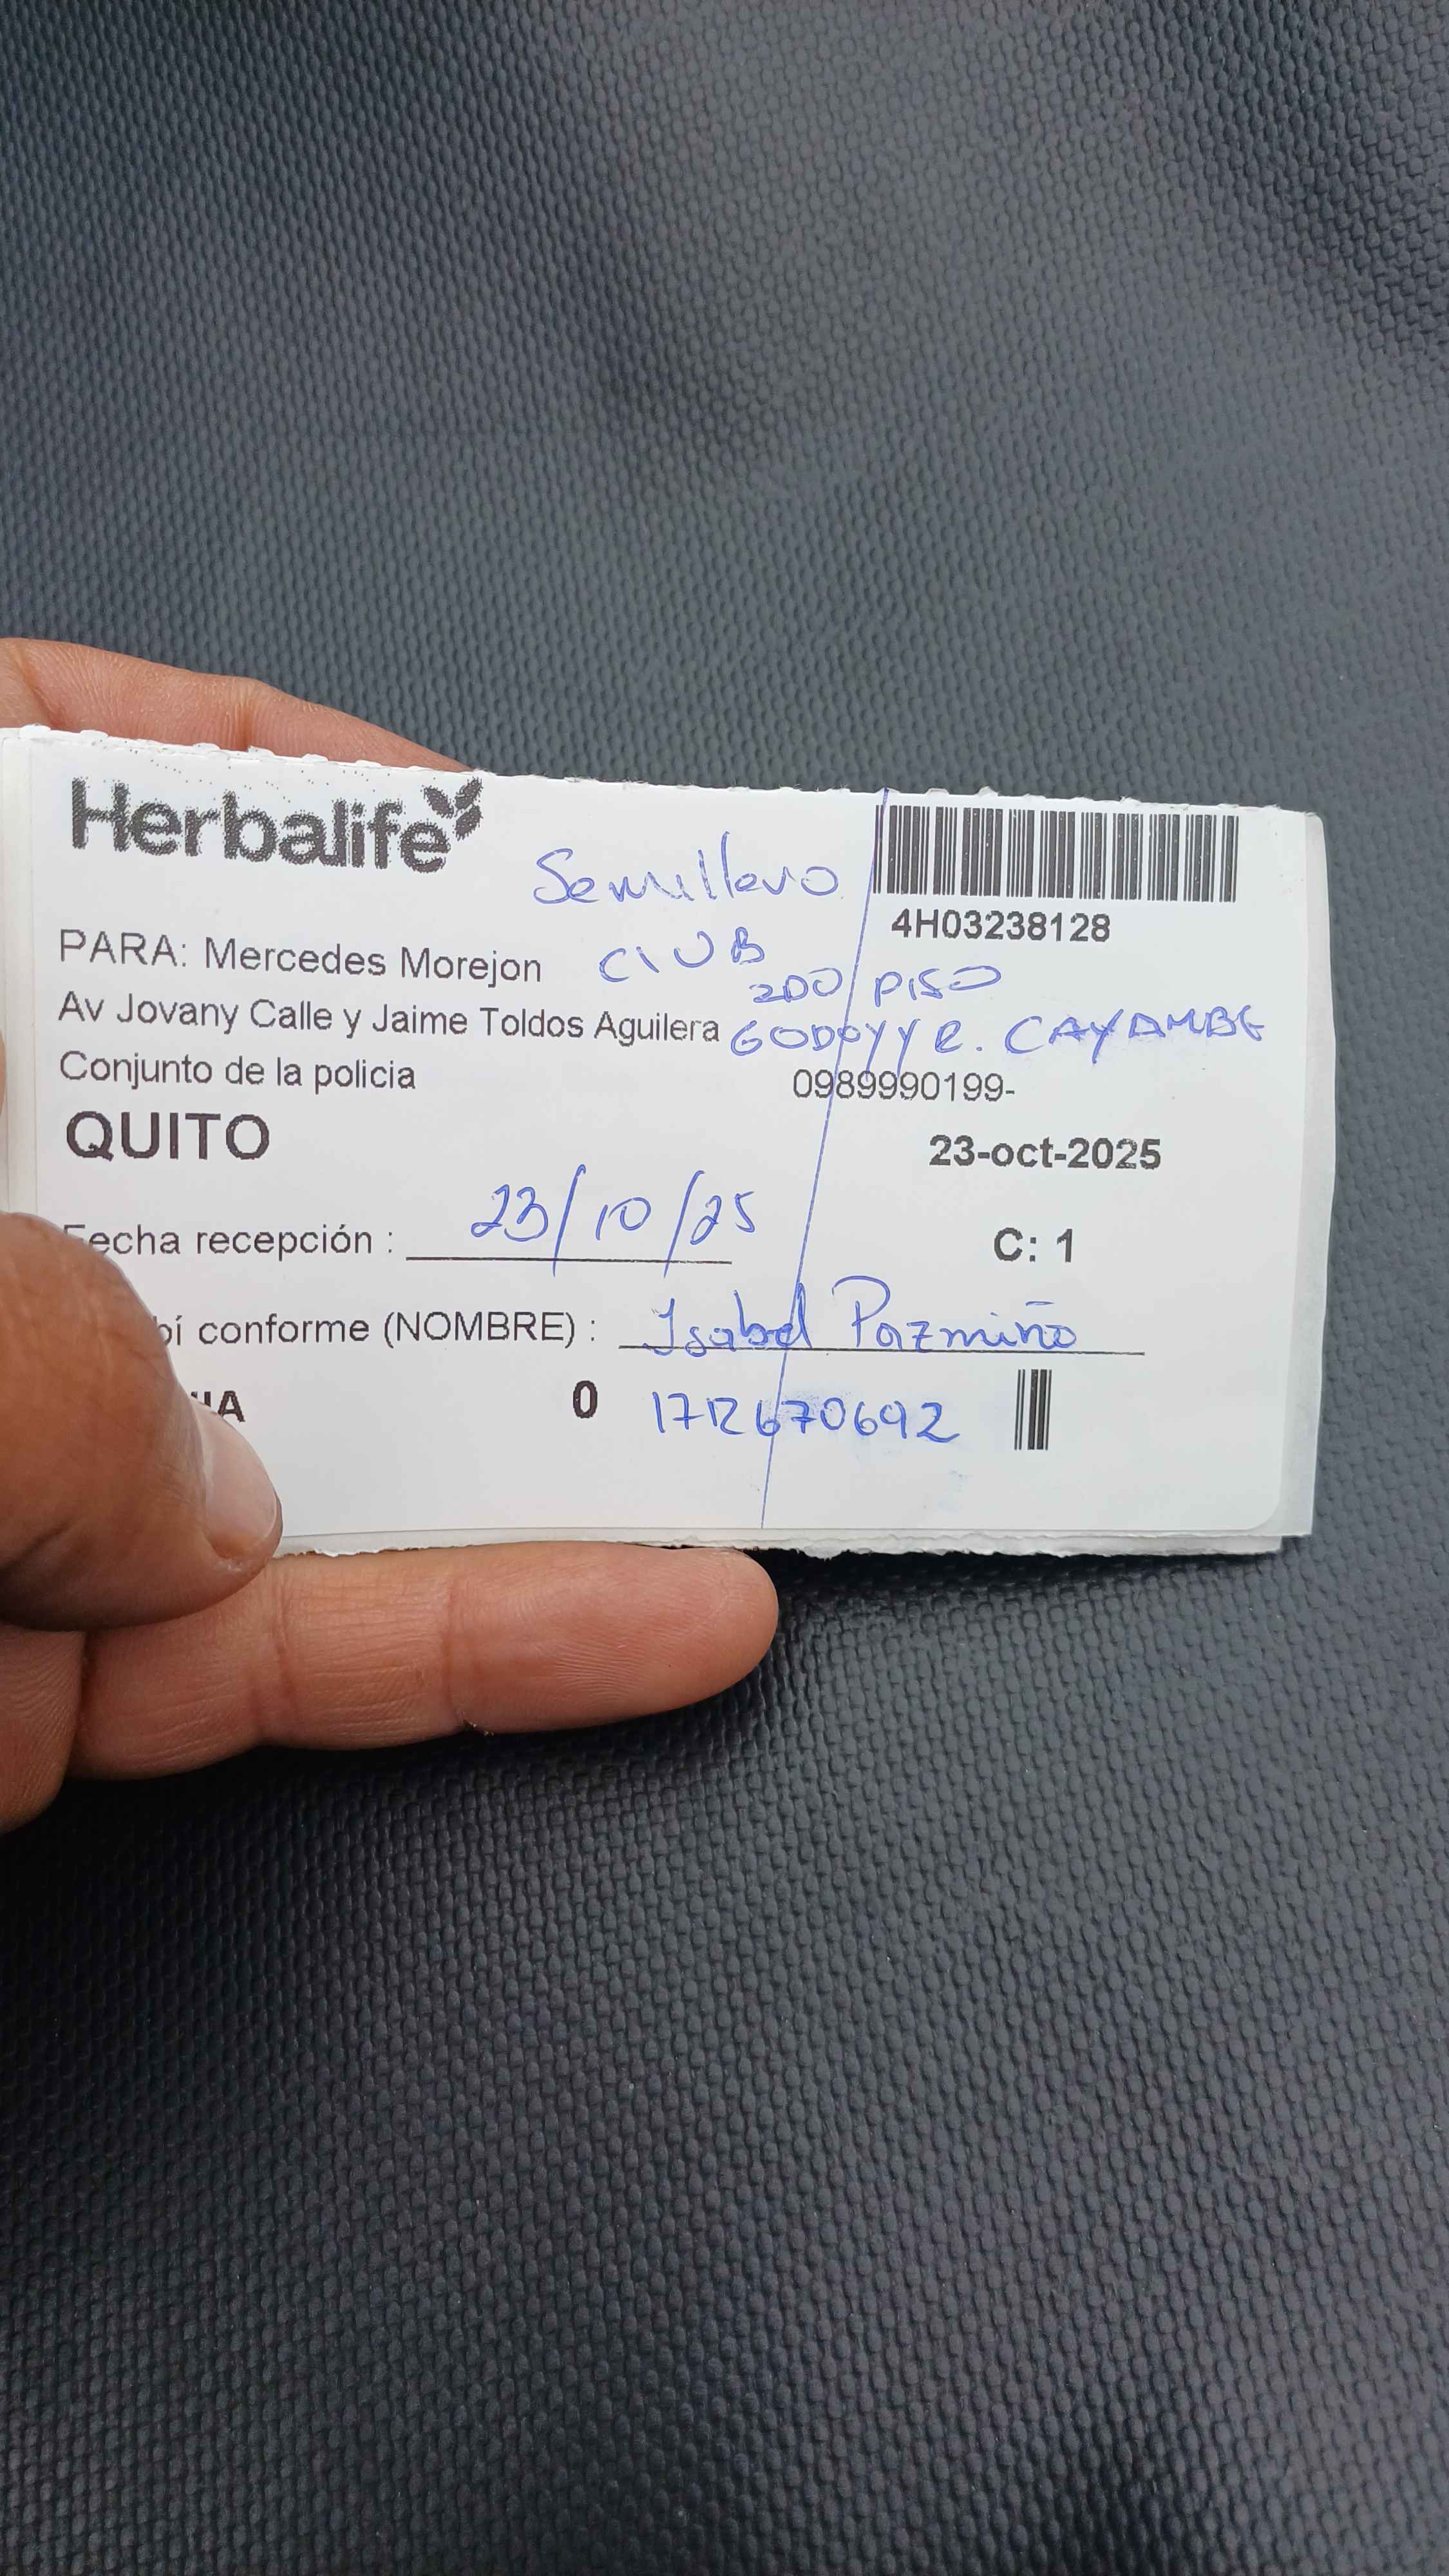 Herbalife
Semillero
4H03238128
PARA: Mercedes Morejon CLUB
2DO PISO
Av Jovany Calle y Jaime Toldos Aguilera GODOY Y R. CAYAMBE
Conjunto de la policia 0989990199-
QUITO 23-oct-2025
Fecha recepción : 23/10/25 C: 1
bí conforme (NOMBRE) : Isabel Pazmiño
IA 0 1712670692